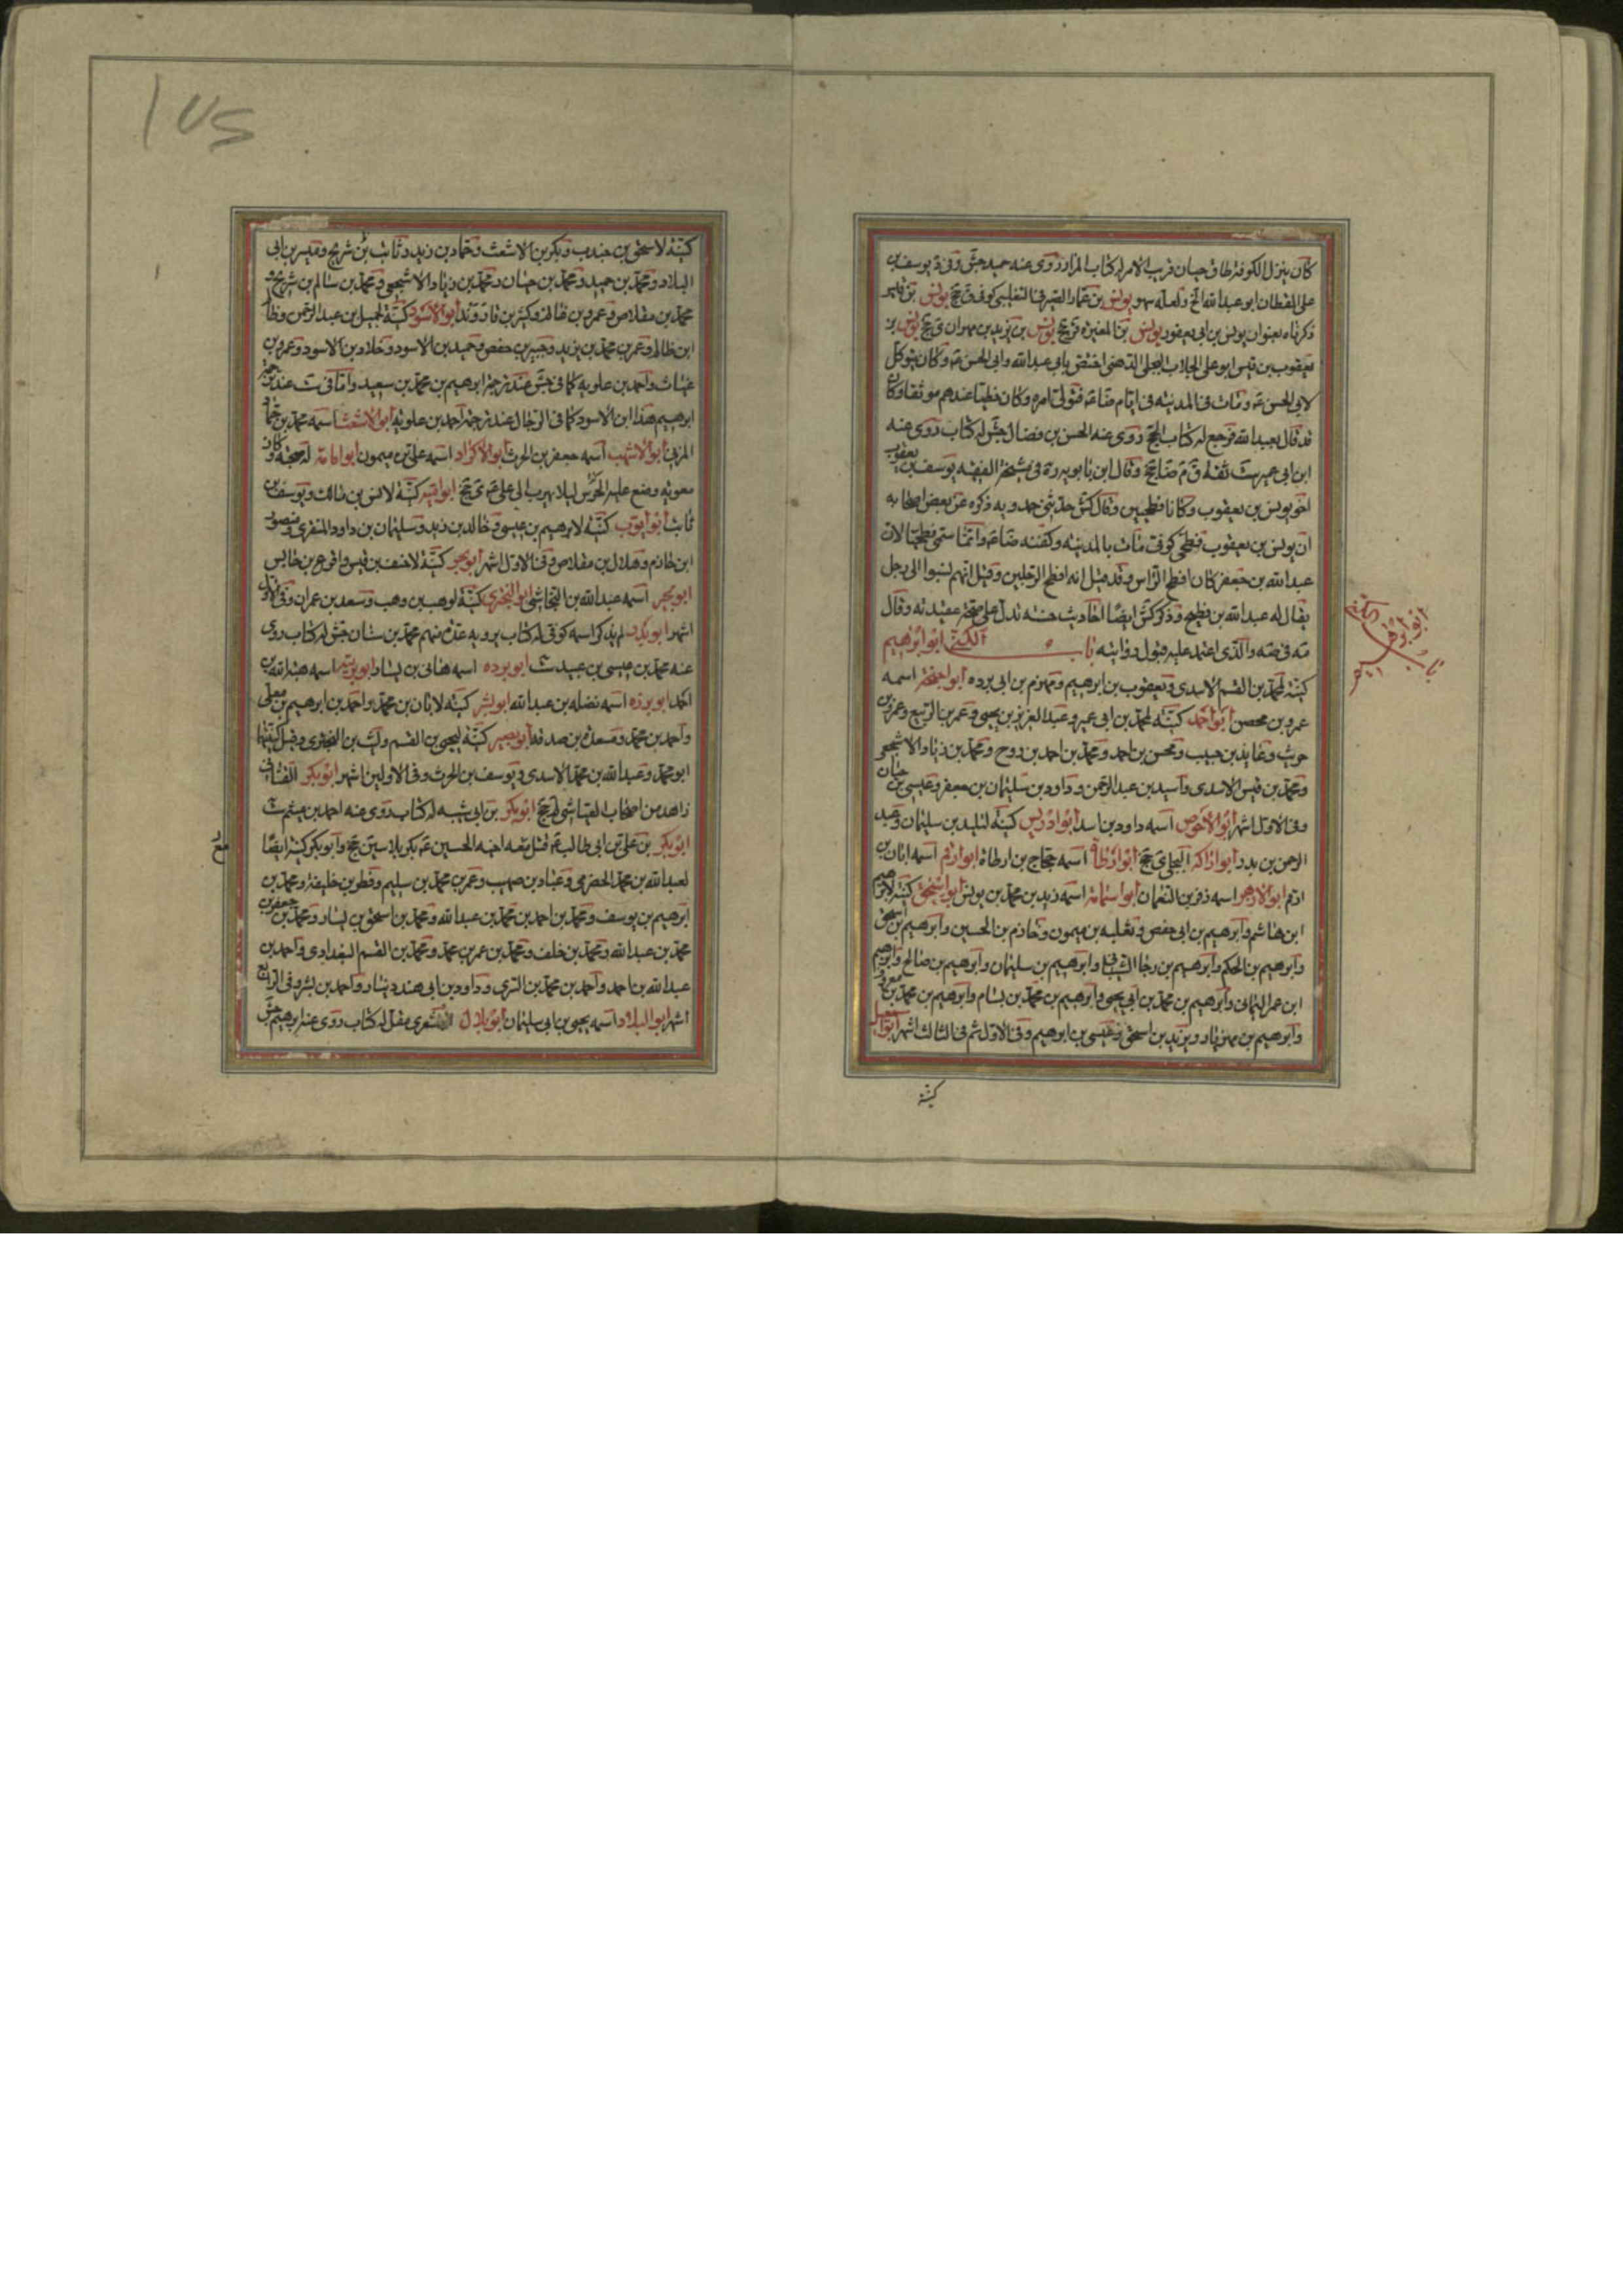 كان ينزل الكوفة طاق حيان قريب الامر له كتاب المزار روى عنه حميد جش وفى يوسف بن
على القطان ابو عبدالله الخ ولعله سهو يونس بن عمار الصيرفى التغلبى كوفى ق جخ يونس بن قيس
ذكرناه بعنوان يونس بن ابى يعفور يونس بن المغيره ق جخ يونس بن يزيد بن مهران ق جخ يونس بن
يعقوب بن قيس ابو على الجلاب البجلى الدهنى اختص بابى عبدالله وابى الحسن ع وكان يتوكل
لابى الحسن ع ومات فى المدينه فى ايام ضا ع فتولى امره وكان حظيا عندهم موثقا وكان
قد قال بعبدالله فرجع له كتاب الحج روى عنه الحسن بن فضال جش له كتاب روى عنه
ابن ابى عمير ست ثقه ق م ضا جخ وقال ابن بابويه ره فى مشيخة الفقيه يوسف بن يعقوب
اخو يونس بن يعقوب وكانا فطحيين وقال كش حدثنى حمدويه ذكره عن بعض اصحابه
ان يونس بن يعقوب فطحى كوفى مات بالمدينه وكفنه ضا ع وانما سمى فطحيا لان
عبدالله بن جعفر كان افطح الراس وقد قيل انه افطح الرجلين وقيل انهم نسبوا الى رجل
يقال له عبدالله بن فطيح وذكر كش ايضا احاديث حسنه تدل على صحة عقيدته وقال
مه فى صه والذى اعتمد عليه قبول روايته باب الكنى ابو ابراهيم
كنية لمحمد بن القسم الاسدى ويعقوب بن ابرهيم ومهزم بن ابى برده اسمه
عمرو بن محصن ابو احمد كنية لمحمد بن ابى عمير وعبدالعزيز بن يحيى وعمر بن الربيع وعمرو بن
حريث وعايذ بن حبيب ومحسن بن احمد ومحمد بن احمد بن روح ومحمد بن زياد الاشجعى
ومحمد بن قيس الاسدى واسيد بن عبدالرحمن وداود بن سليمان بن جعفر وعيسى بن حيان
وفى الاول اشهر ابو الاحوص اسمه داود بن اسد ابو ادريس كنية لتليد بن سليمان وعبد
الرحمن بن بدر ابو اراكه البجلى ى جخ ابو ارطاة اسمه حجاج بن ارطاة ابو ارقم اسمه ابان بن
ارقم ابو الازهر اسمه زفر بن النعمان ابو اسامة اسمه زيد بن محمد بن يونس ابو اسحق كنية لابراهيم
ابن هاشم وابرهيم بن ابى حفص وثعلبه بن ميمون وخازم بن الحسين وابرهيم بن اسحق
وابرهيم بن الحكم وابرهيم بن رجا الشيبانى وابرهيم بن سليمان وابرهيم بن صالح وابرهيم
ابن عمر اليمانى وابرهيم بن محمد بن ابى يحيى وابرهيم بن محمد بن بسام وابرهيم بن محمد بن معروف
وابرهيم بن مهزيار ويزيد بن اسحق وعيسى بن ابرهيم وفى الاول ثم فى الثالث اشهر ابو اسمعيل
كنية
كنية لاسحق بن جندب وبكر بن الاشعث وحماد بن زيد وثابت بن شريح وقيس بن ابى
البلاد ومحمد بن حميد ومحمد بن حيان ومحمد بن زياد الاشجعى ومحمد بن سالم بن شريح و
محمد بن مقلاص وعمرو بن ابو الاسود كنية لجميل بن عبدالرحمن وظالم
ابن ظالم وعمر بن محمد بن يزيد حفص وحميد بن الاسود وخلاد بن الاسود وعمرو بن
غياث واحمد بن علويه كما فى جش عند ترجمة ابرهيم بن محمد بن سعيد واما فى ست عند ترجمة
ابرهيم هذا ابن الاسود كما فى الرجال عند ترجمة احمد بن علويه ابو الاشعث اسمه محمد بن حماد
المزنى ابو الاشهب اسمه جعفر بن الحرث ابو الاكراد اسمه على بن ميمون ابو امامة له صحبة وكان
معويه وضع عليه الحرس ليلا يهرب الى على ع ى جخ ابو اميه كنية لانس بن مالك ويوسف بن
ثابت ابو ايوب كنية لابرهيم بن عيسى وخالد بن زيد وسليمان بن داود المنقرى ومنصور
ابن خازم وهلال بن مقلاص وفى الاول اشهر ابو بحر كنية لاحنف بن قيس واقرع بن حابس
ابو بجير اسمه عبدالله بن النجاشى ابو البخترى كنية لوهب بن وهب وسعد بن عمران وفى الاول
اشهر ابو بكر لم يذكر اسمه كوفى له كتاب يرويه عده منهم محمد بن سنان جش له كتاب روى
عنه محمد بن عيسى بن عبيد ست ابو برده اسمه هانى بن نيار اسمه هبة الله بن
احمد ابو برزه اسمه نضله بن عبدالله ابو بشر كنية لابان بن محمد واحمد بن ابرهيم بن معلى
واحمد بن محمد ومسعدة بن صدقه ابو بصير كنية ليحيى بن القسم وليث بن البخترى وقيل كنيتهما
ابو محمد وعبدالله بن محمد الاسدى ويوسف بن الحرث وفى الاولين اشهر ابو بكر القنانى
زاهد من اصحاب العياشى لم جخ ابو بكر بن ابى شيبه له كتاب روى عنه احمد بن ميثم ست
ابو بكر بن على بن ابى طالب ع قتل معه اخيه الحسين ع بكربلا سين جخ وابو بكر كنية ايضا
لعبدالله بن محمد الحضرمى وعباد بن صهيب وعمر بن محمد بن سليم وفطر بن خليفة ومحمد بن
ابرهيم بن يوسف ومحمد بن احمد بن محمد بن عبدالله ومحمد بن اسحق بن يسار ومحمد بن جعفر بن
محمد بن عبدالله ومحمد بن خلف ومحمد بن عمر بن محمد ومحمد بن القسم البغدادى واحمد بن
عبدالله بن احمد واحمد بن محمد بن السرى وداود بن ابى هند دينار واحمد بن بشر وفى الرابع
اشهر ابو البلاد اسمه يحيى بن ابى سليمان ابو بلال الاشعرى مقل له كتاب روى عنه ابرهيم جش